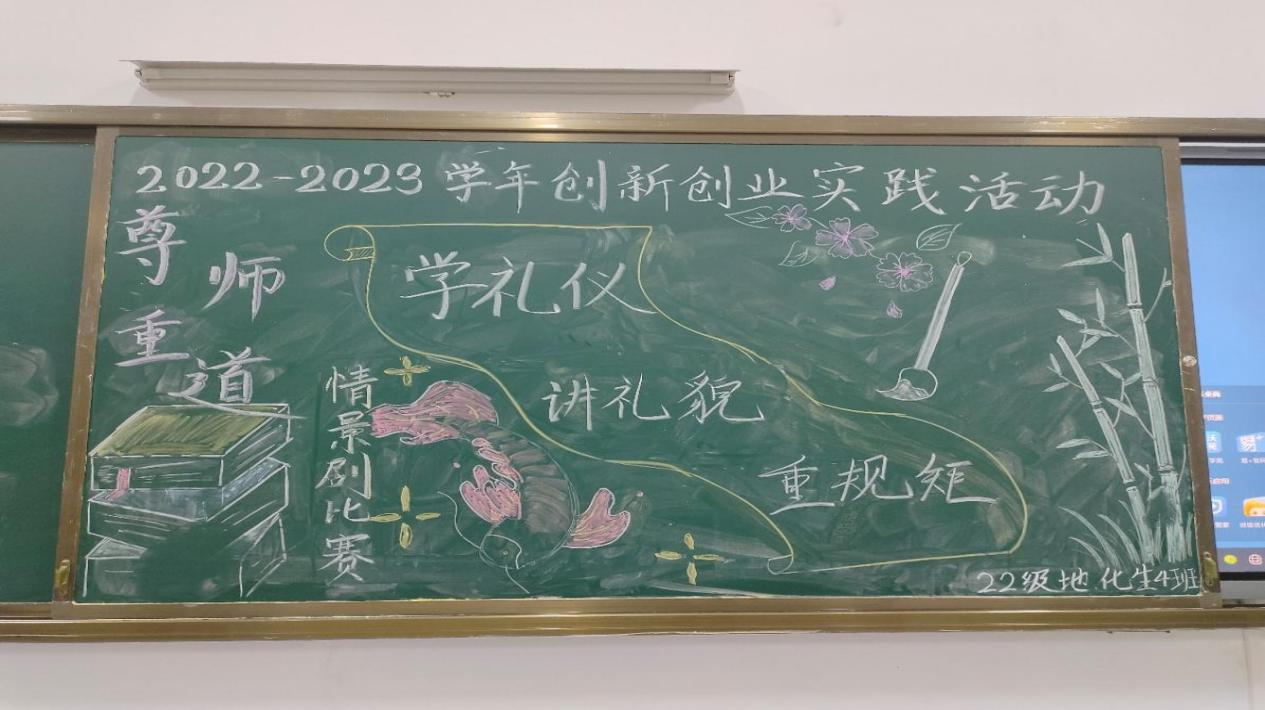 2022-2023学年创新创业实践活动
尊师重道
学礼仪
讲礼貌
重规矩
情景剧比赛
22级地化生4班